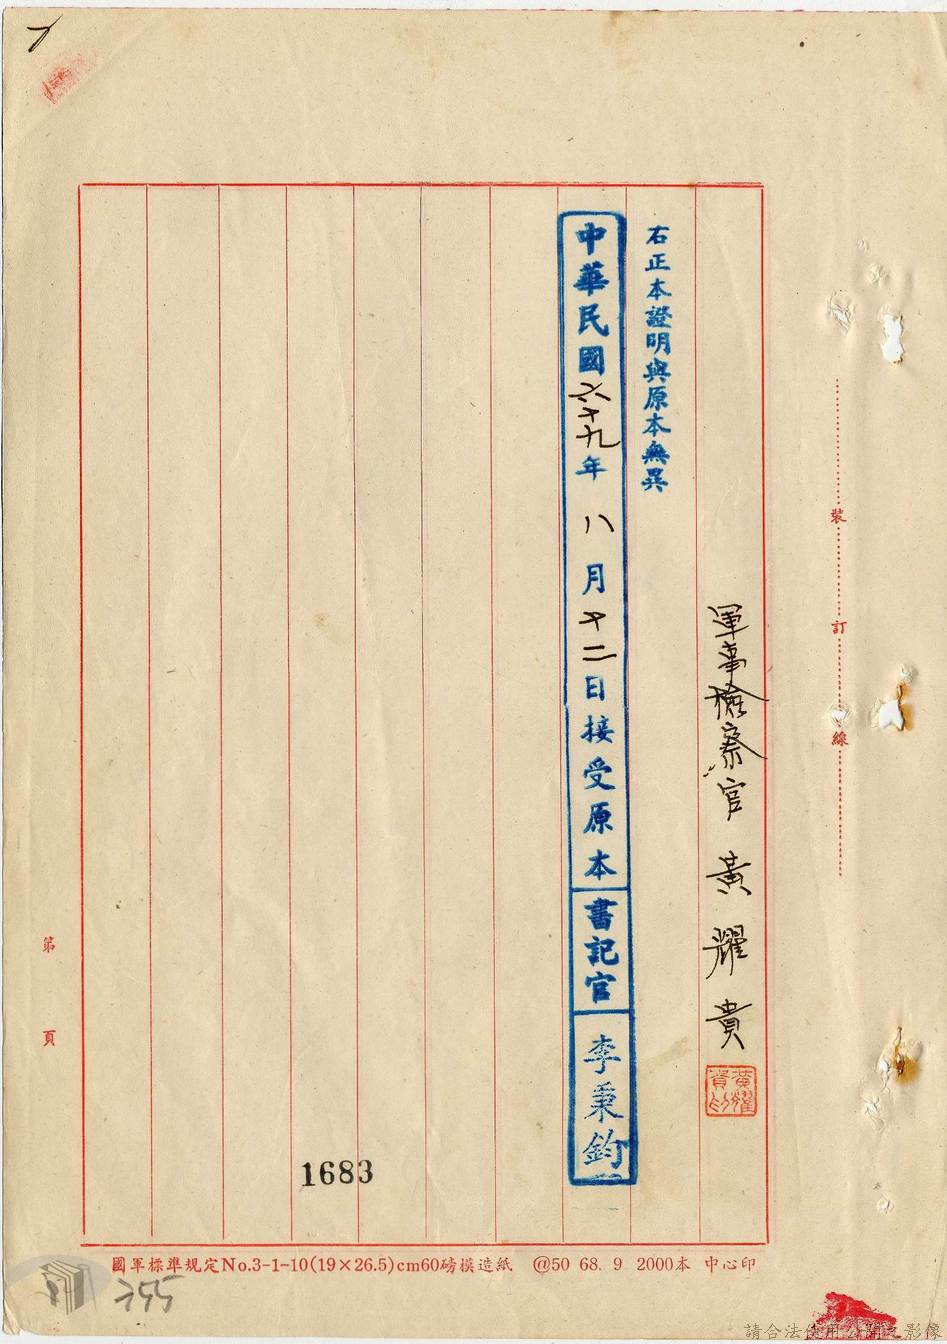 軍事檢察官 黃耀貴
黃耀貴印
右正本證明與原本無異
中華民國六十九年八月十二日接受原本書記官李秉鈞
裝訂線
第 頁
1683
國軍標準規定No.3-1-10(19×26.5)cm60磅模造紙 @50 68. 9 2000本 中心印
355
請合法使用公開之影像